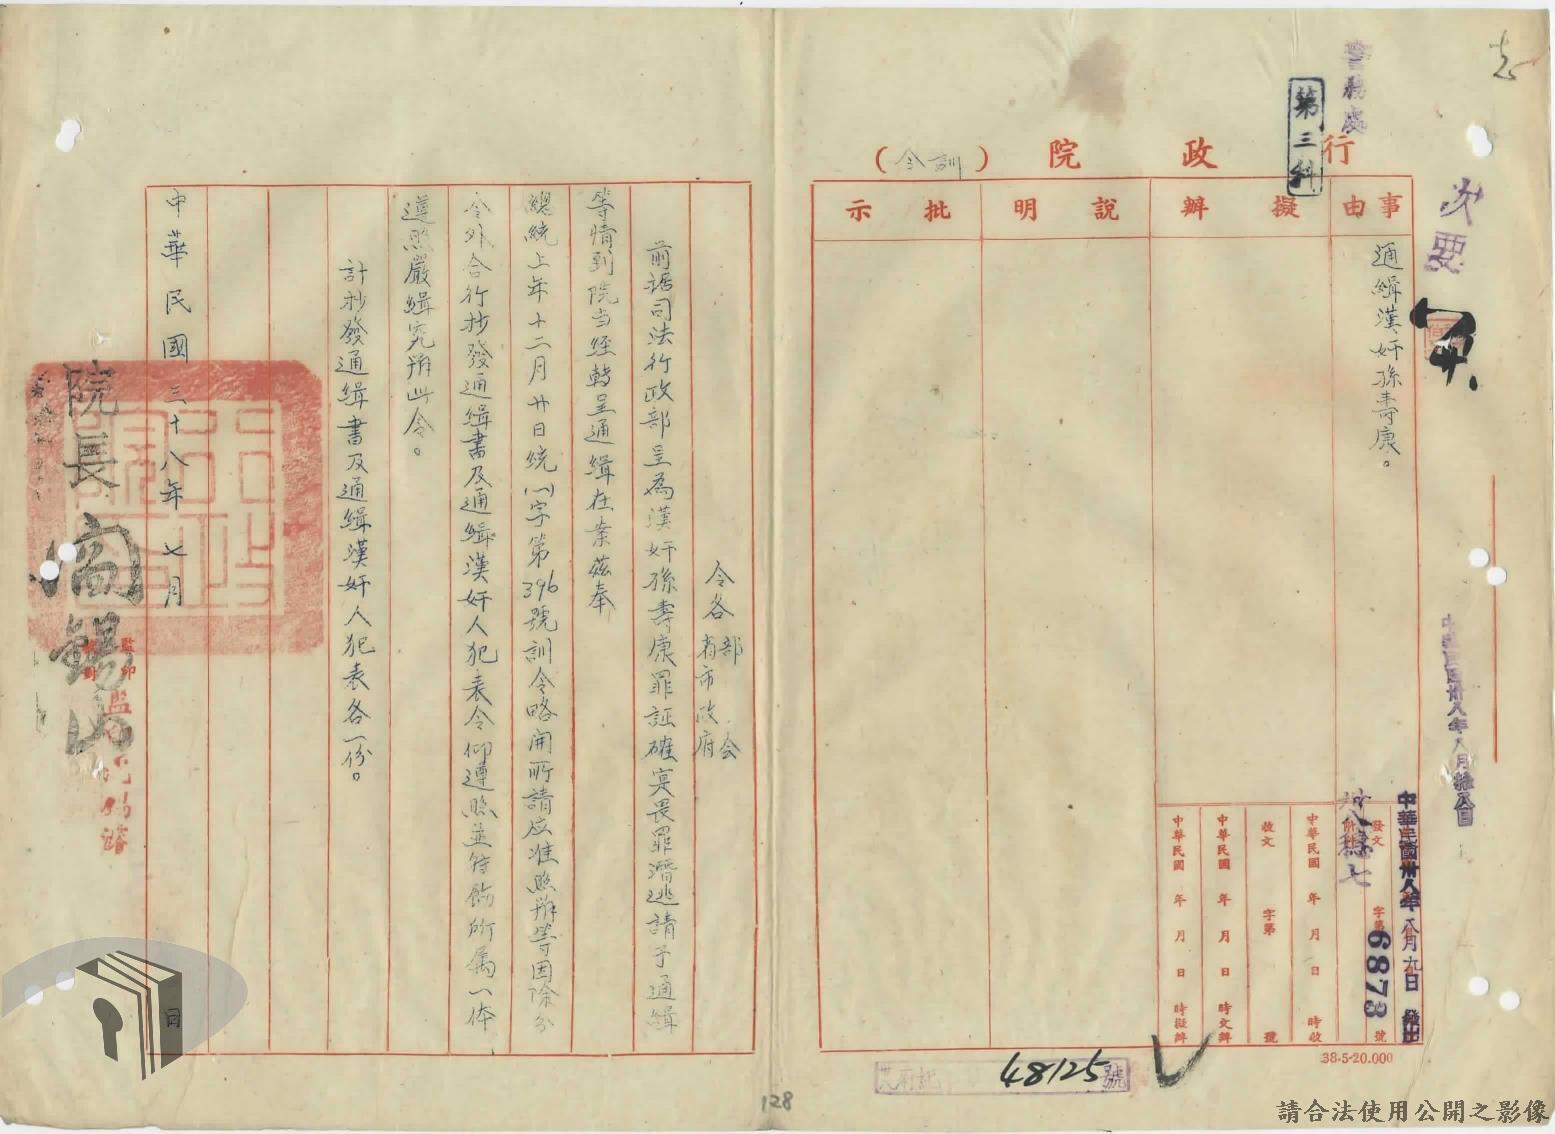 警務處
第三科
行政院（訓令）
次要
事由
擬辦
說明
批示
通緝漢奸孫壽康。
中華民國卅八年八月九日發出
發文
字第6873號
卅八穗七
中華民國 年 月 日 時收
收文 字第 號
中華民國 年 月 日 時交辦
中華民國 年 月 日 時擬辦
38-5-20.000
48125號
令各部會
省市政府
前據司法行政部呈為漢奸孫壽康罪証確實畏罪潛逃請予通緝
等情到院当經轉呈通緝在案茲奉
總統上年十二月廿日統(一)字第396號訓令略開所請应准照辦等因除分
令外合行抄發通緝書及通緝漢奸人犯表令仰遵照並特飭所属一体
遵照嚴緝究辦此令。
計抄發通緝書及通緝漢奸人犯表各一份。
中華民國三十八年七月 日
院長閻錫山
監印
128
請合法使用公開之影像